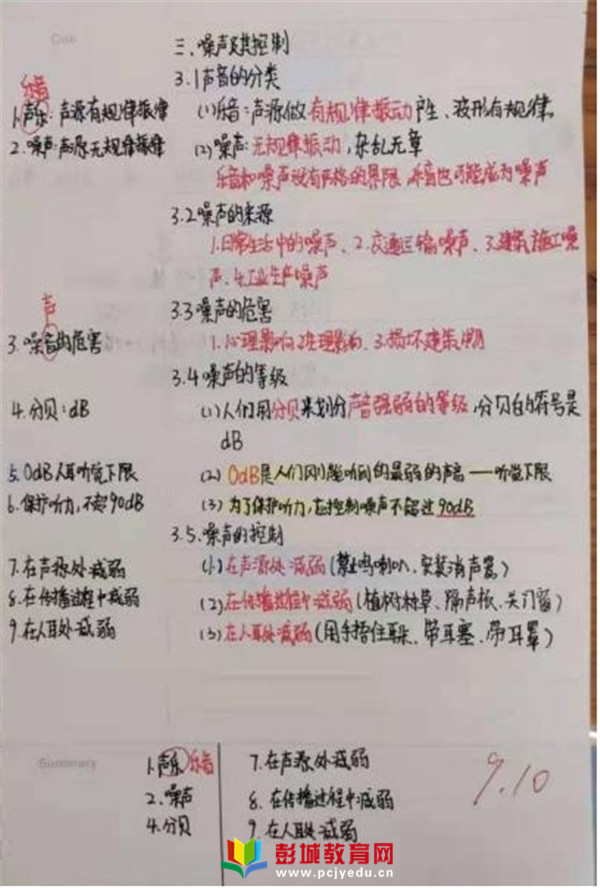 Cue
三、噪声及其控制
3.1声音的分类
乐音
1.声乐:声源有规律振律
(1)乐音:声源做有规律振动产生、波形有规律。
2.噪声:声源无规律振律
(2)噪声:无规律振动,杂乱无章
乐音和噪声没有严格的界限,乐音也可能成为噪声
3.2噪声的来源
1.日常生活中的噪声、2.交通运输噪声、3.建筑施工噪
声、4.工业生产噪声
3.3噪声的危害
声
3.噪音的危害
1.心理影响 2.生理影响、3.损坏建筑物
3.4噪声的等级
4.分贝:dB
(1)人们用分贝来划分声音强弱的等级,分贝的符号是
dB
5.0dB人耳听觉下限
(2)0dB是人们刚能听到的最弱的声音——听觉下限
6.保护听力,不超90dB
(3)为了保护听力,应控制噪声不超过90dB
3.5.噪声的控制
7.在声源处减弱
(1)在声源处减弱(禁止鸣喇叭、安装消声器)
8.在传播过程中减弱
(2)在传播过程中减弱(植树种草、隔声板、关门窗)
9.在人耳处减弱
(3)在人耳处减弱(用手捂住耳朵、带耳塞、带耳罩)
Summary
1.声乐 乐音
2.噪声
4.分贝
7.在声源处减弱
8.在传播过程中减弱
9.在人耳处减弱
9.10
彭城教育网
www.pcjyedu.cn